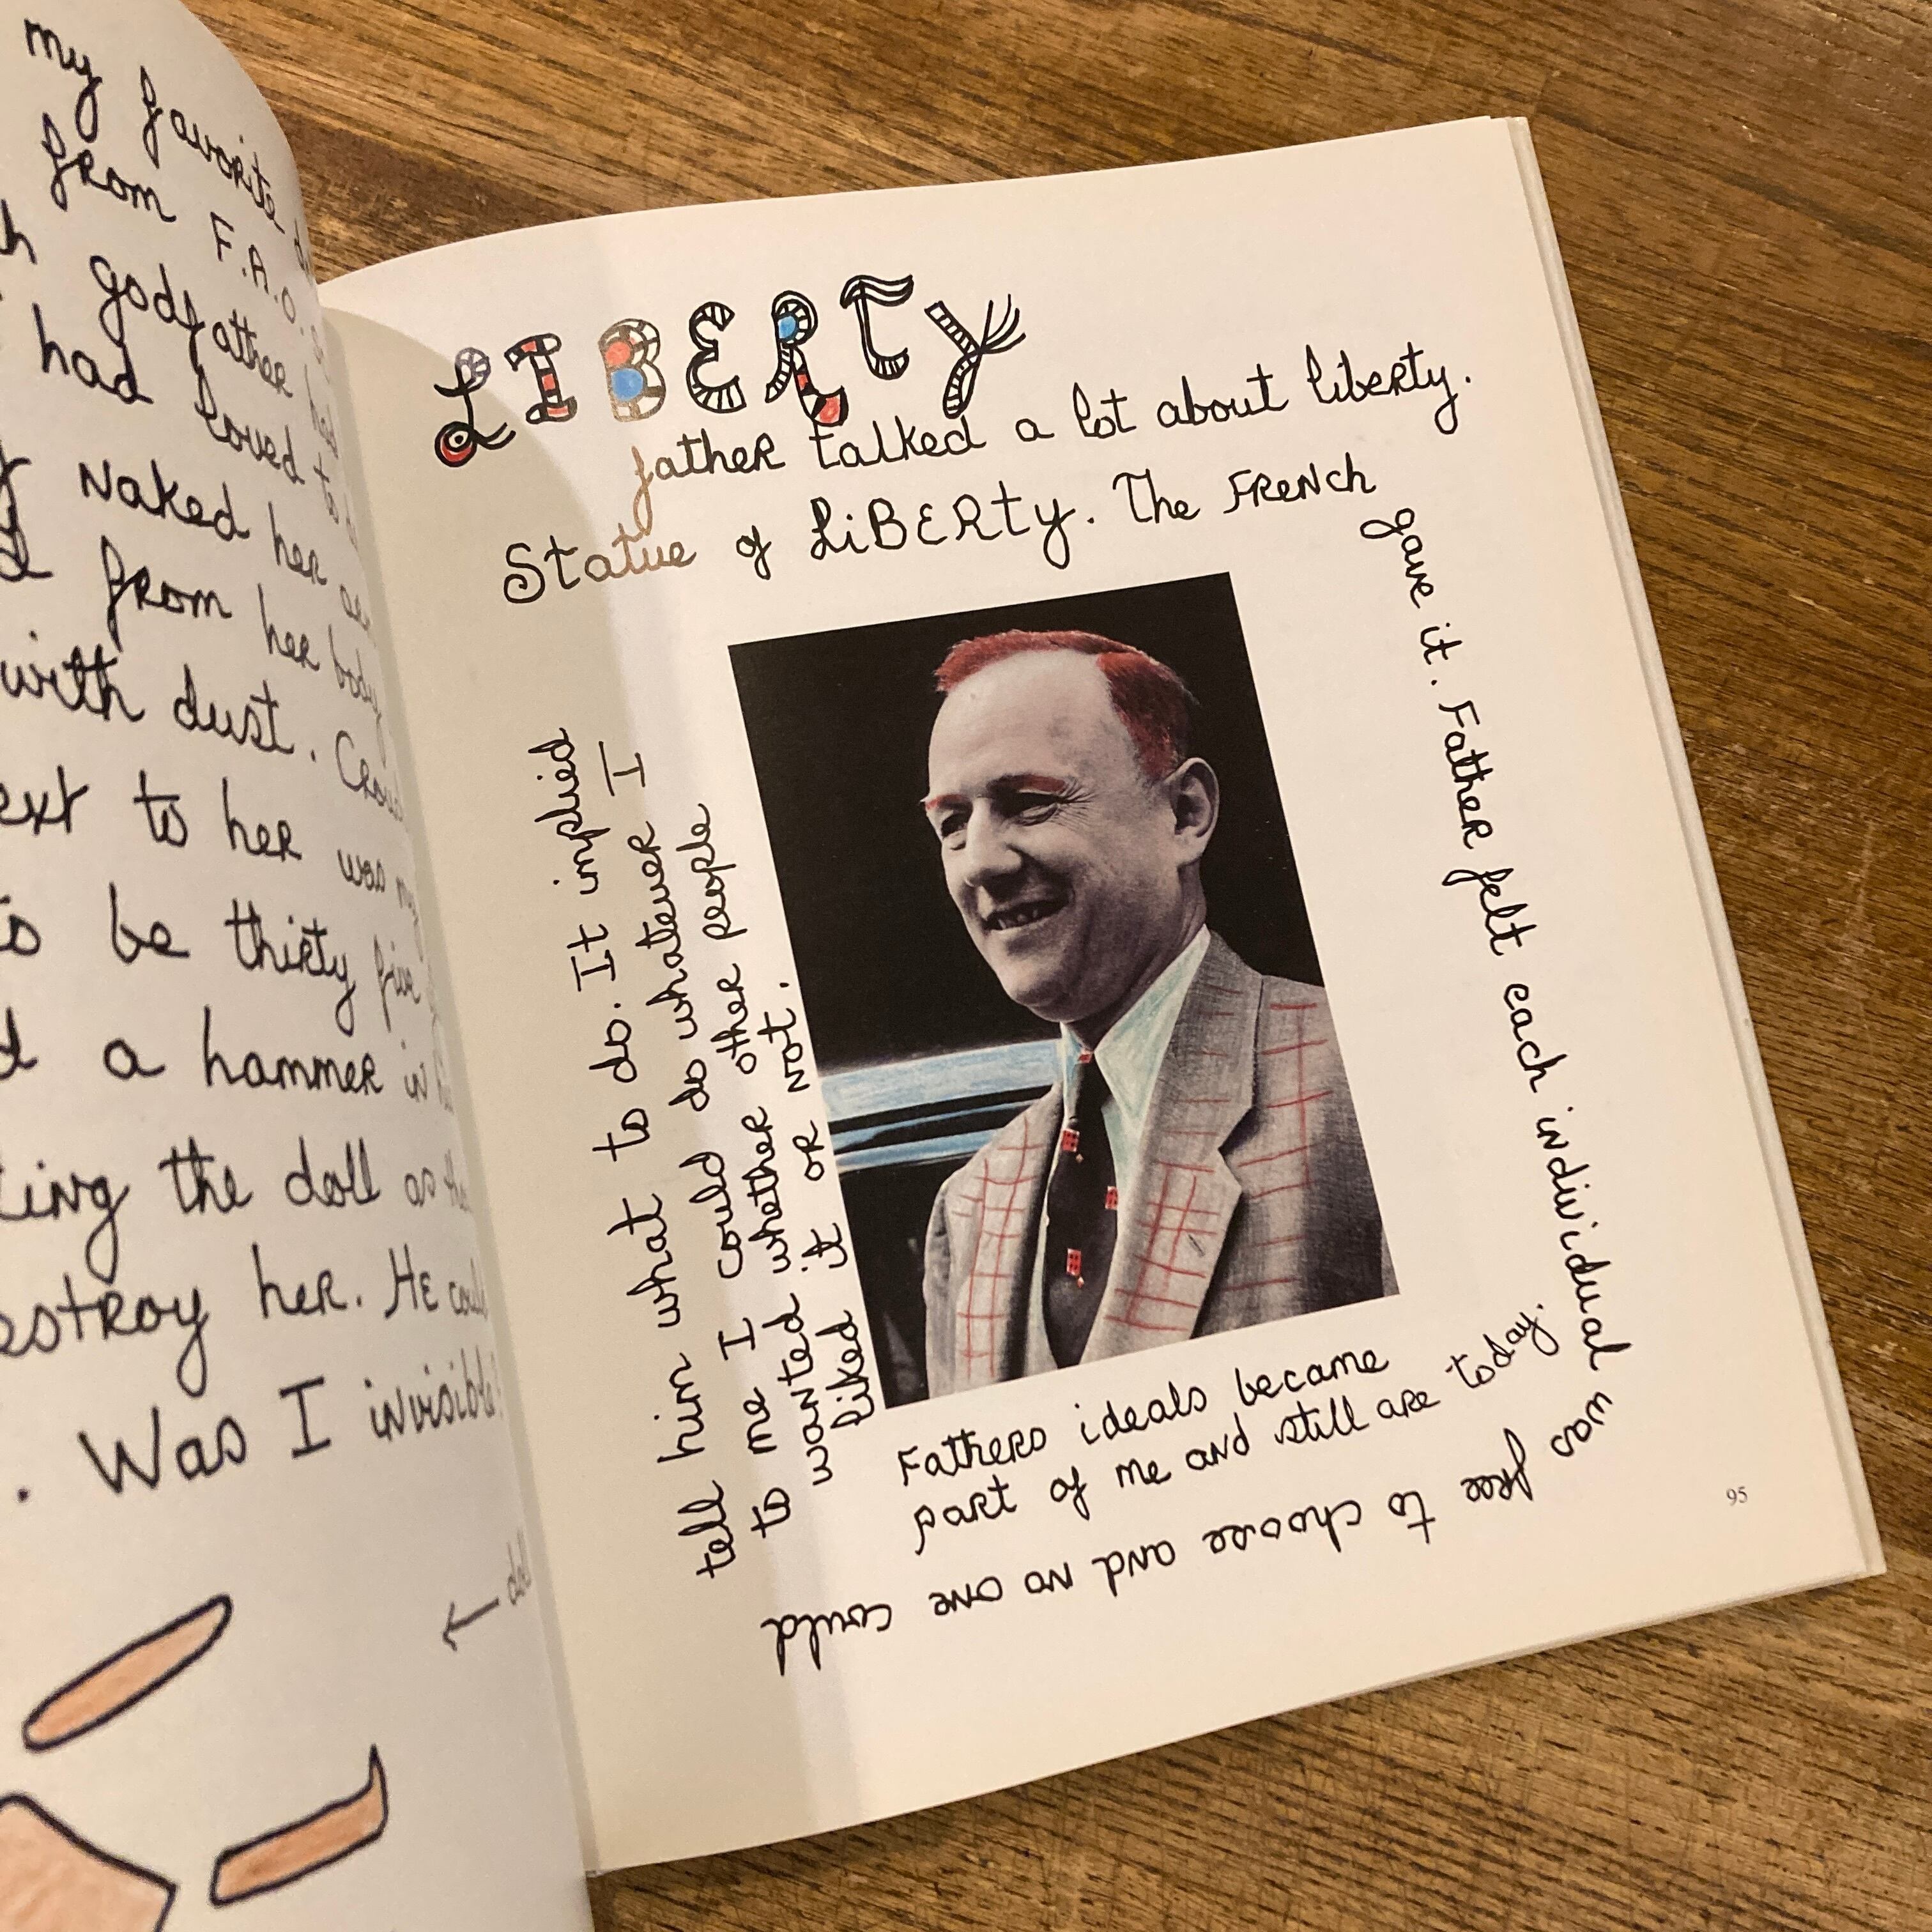 my favorite
from F.A.O.
godfather had
had loved to
Naked her
from her body
with dust.
to her was
be thirty five
a hammer in
the doll as
her. HE
. Was I invisible
LIBERTY
father talked a lot about liberty.
Statue of LiBERty. The FRENCH
gave it. Father felt each individual was
free to choose and no one could
tell him what to do. It implied
to me I could do whatever I
wanted whether other people
liked it or not.
Fathers ideals became
part of me and still are today.
95